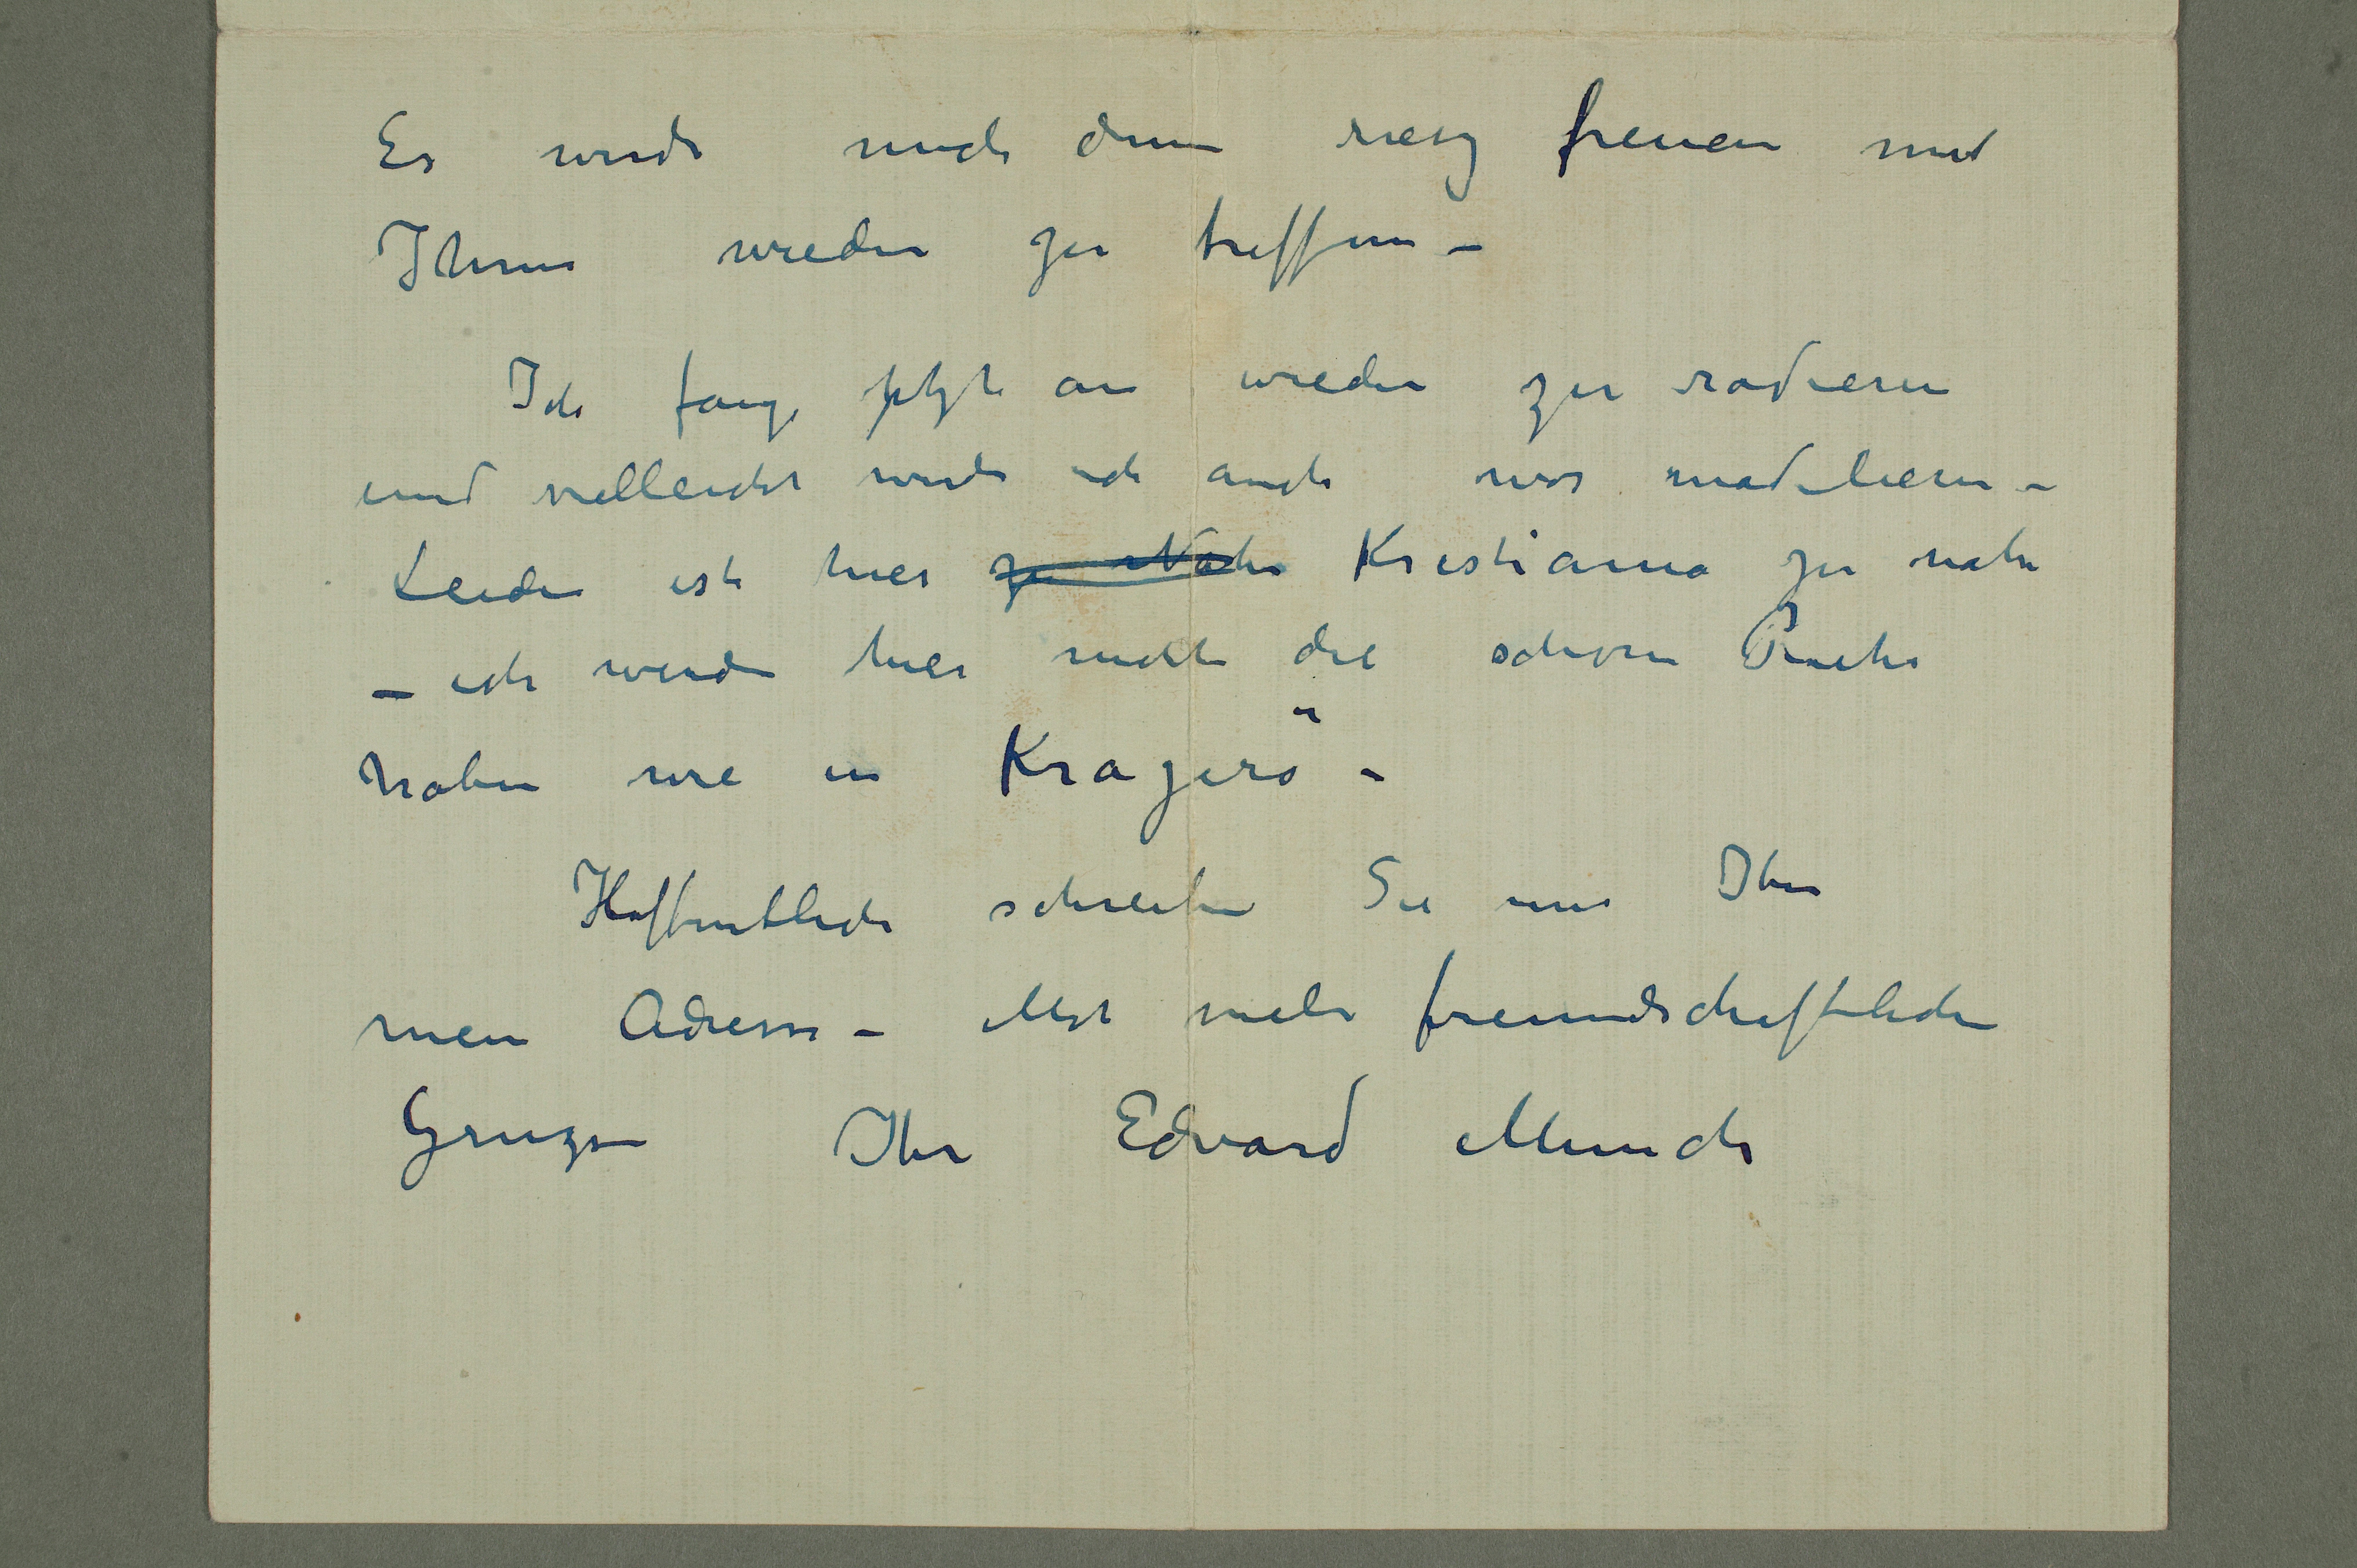 Es wird mich dann riesig freuen mit
Ihnen wieder zu treffen –
Ich fange jetzt an wieder zu radieren
und vielleicht werde ich auch was modelieren –
Leider ist hier zu Nahe Kristiania zu nahe
– ich werde hier nicht die schöne Ruhe
haben wie in Kragerö –
Hoffentlich schreiben Sie mir Ihre
neue Adresse – Mit viele freundschaftlichen
Gruzse Ihr Edvard Munch